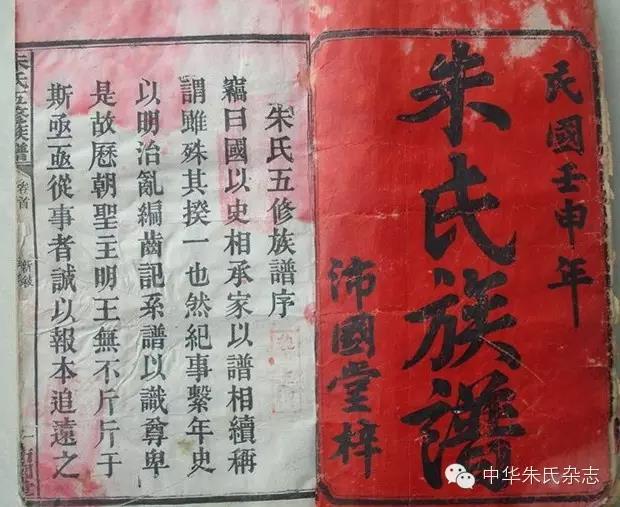 民國壬申年
朱氏族譜
沛國堂梓
朱氏五修族譜序
竊曰國以史相承家以譜相續稱
謂雖殊其揆一也然紀事繫年史
以明治亂編齒記系譜以識尊卑
是故歷朝聖主明王無不斤斤于
斯亟亟從事者誠以報本追遠之
朱氏五修族譜
卷首
中华朱氏杂志